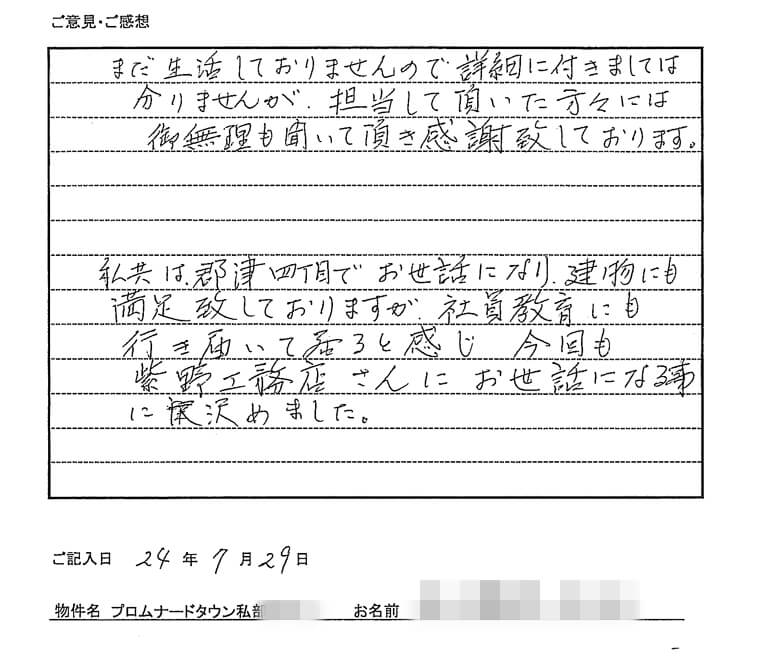 ご意見・ご感想
まだ生活しておりませんので詳細に付きましては
分りませんが、担当して頂いた方々には
御無理も聞いて頂き感謝致しております。
私共は、郡津四丁目でお世話になり、建物にも
満足致しておりますが、社員教育にも
行き届いて居ると感じ 今回も
紫野工務店さんに お世話になる事
に決めました。
ご記入日 24 年 7 月 29 日
物件名 プロムナードタウン私部 お名前